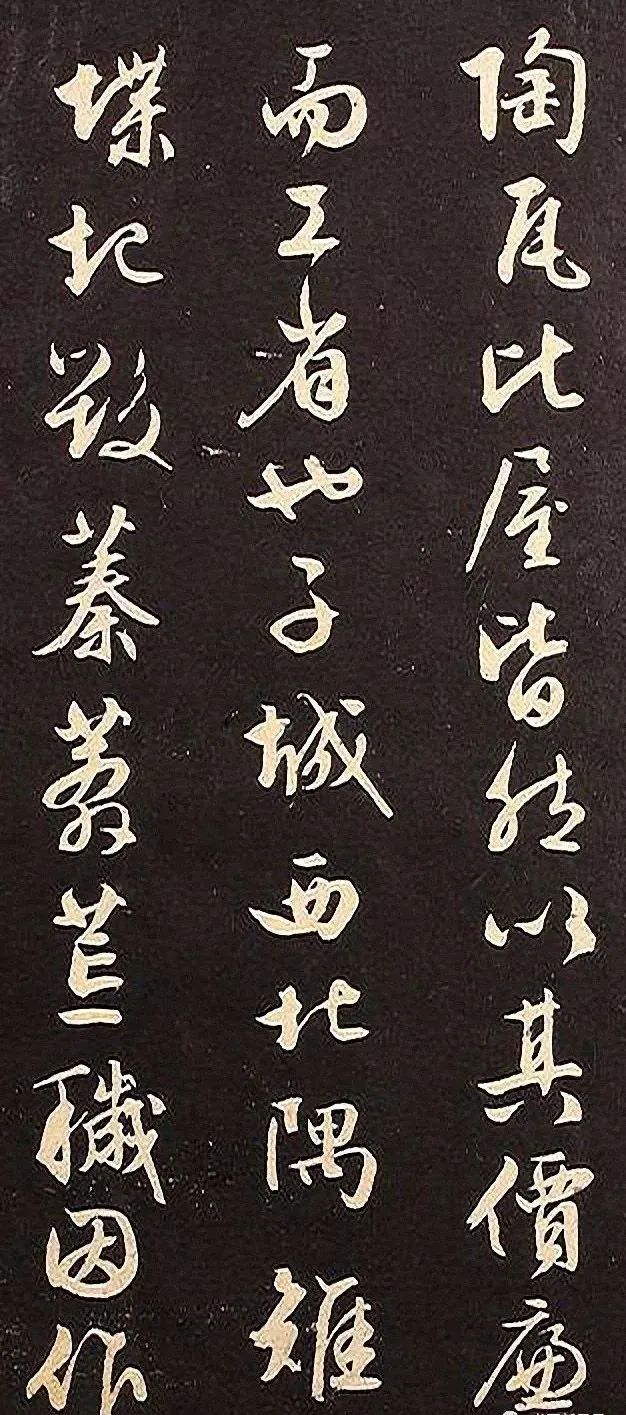 陶瓦比屋皆然以其價廉
而工省也子城西北隅雉
堞圮毀蓁莽荒穢因作